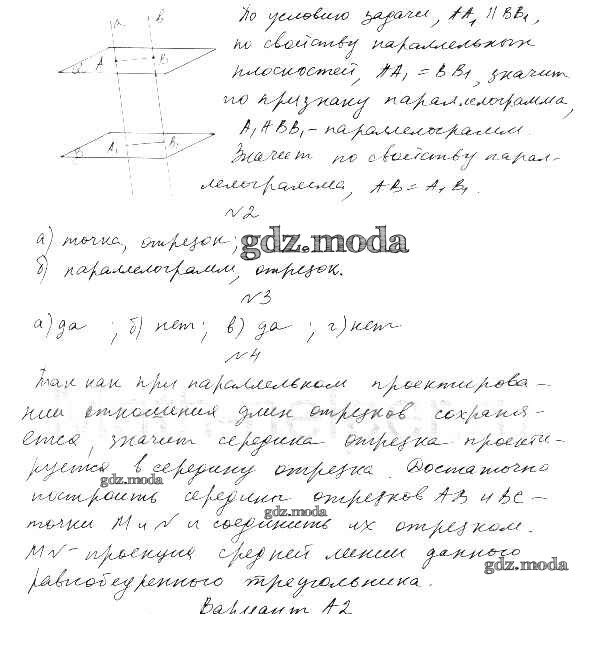 a B По условию задачи, AA₁ || BB₁,
по свойству параллельных
α A B₁ плоскостей, AA₁ = BB₁, значит
по признаку параллелограмма,
A₁ABB₁ - параллелограмм.
β A₁ B₁ Значит по свойству парал-
лелограмма, AB = A₁B₁.
№2
а) точка, отрезок;
gdz.moda
б) параллелограмм, отрезок.
№3
а) да ; б) нет; в) да ; г) нет
№4
Так как при параллельном проектирова-
нии отношения длин отрезков сохраня-
ется, значит середина отрезка проекти-
руется в середину отрезка. Достаточно
gdz.moda
построить середины отрезков AB и BC -
gdz.moda
точки M и N и соединить их отрезком.
MN - проекция средней линии данного
gdz.moda
равнобедренного треугольника.
Вариант А2